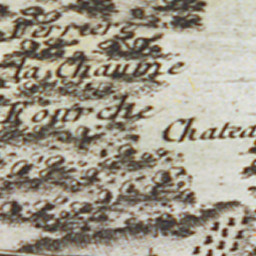 la Chaume
Fourche
Chatea